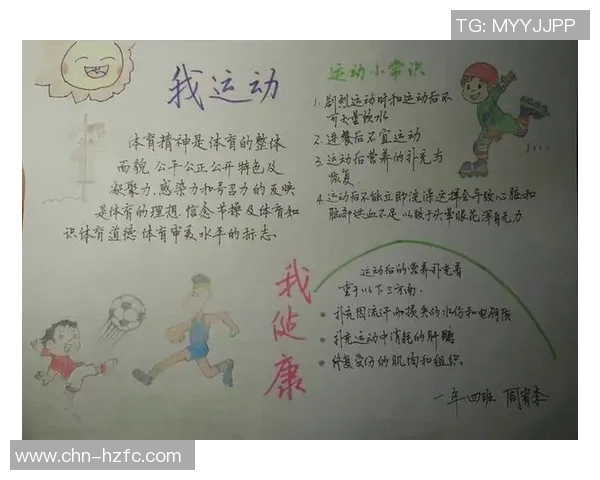 TG: MYYJJPP
我运动
体育精神是体育的整体
面貌 公平公正公开特色及
凝聚力.感染力和号召力的反映
是体育的理想.信念节操及体育知
识体育道德 体育审美水平的标志.
运动小常识
1. 剧烈运动时和运动后不
可大量饮水
2. 进餐后不宜运动
3. 运动后营养的补充与
恢复.
4. 运动后不能立即洗澡这样会导致心脏和
脑部供血不足 以致于头晕眼花浑身无力
我健康
运动后的营养补充着
重于以下三方面.
补充因流汗而损失的水份和电解质
补充运动中消耗的肝醣
修复受伤的肌肉和组织.
一年四班
www.chn-hzfc.com